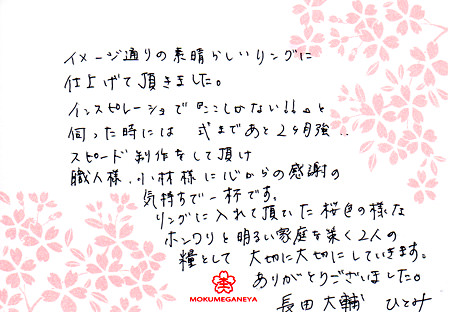 イメージ通りの素晴らしいリングに
仕上げて頂きました。
インスピレーションで『ここしかない!!』と
伺った時には 式まであと2ヶ月強..
スピード制作をして頂け
職人様、小材様に心からの感謝の
気持ちで一杯です。
リングに入れて頂いた桜色の様な
ホンワリと明るい家庭を築く2人の
糧として 大切に大切にしていきます。
ありがとうございました。
長田 大輔 ひとみ
MOKUMEGANEYA